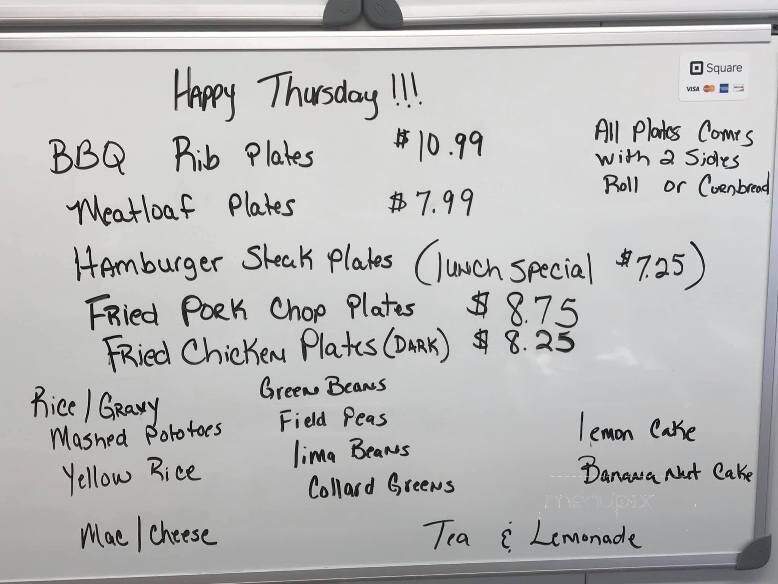 Square
VISA
Happy Thursday!!!
BBQ Rib Plates $10.99
All Plates Comes
with 2 Sides
Roll or Cornbread
Meatloaf Plates $7.99
Hamburger Steak Plates (lunch special $7.25)
Fried Pork Chop Plates $8.75
Fried Chicken Plates (DARK) $8.25
Rice/Gravy
Mashed Pototoes
Yellow Rice
Mac/Cheese
Green Beans
Field Peas
lima Beans
Collard Greens
lemon Cake
Banana Nut Cake
Tea & Lemonade